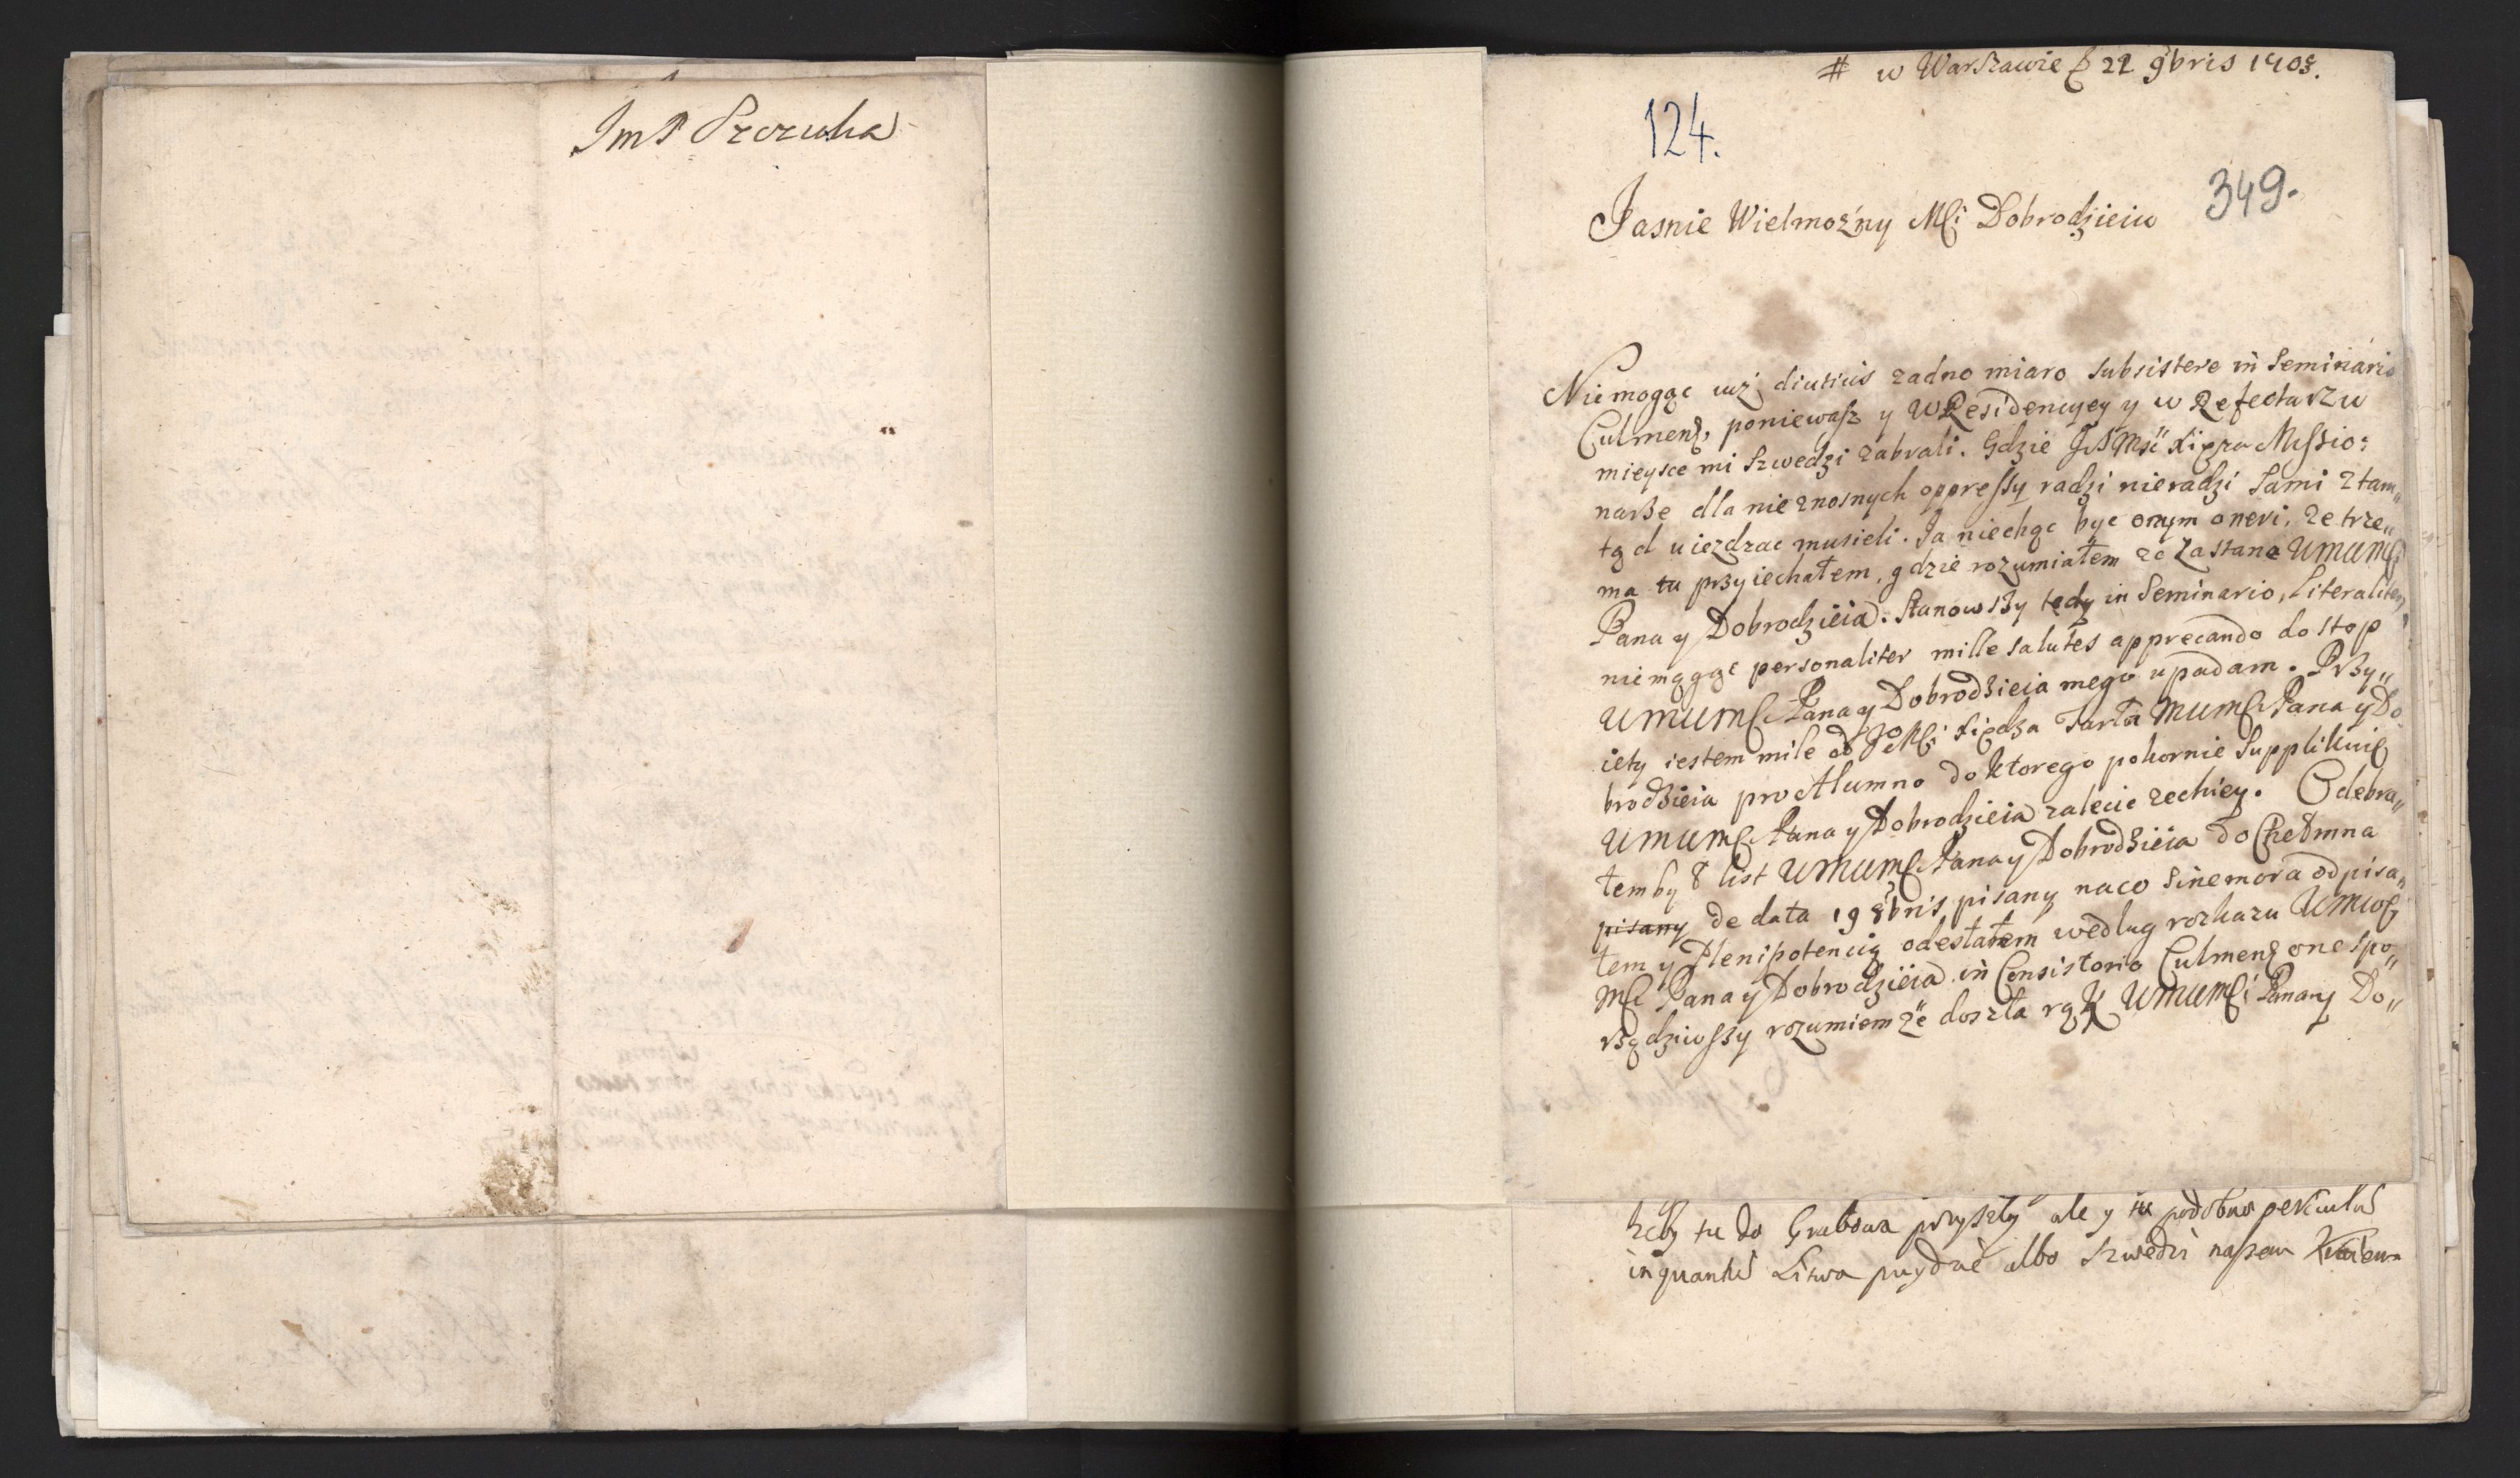 ImP Szczuka
# w Warszawie D 22 9bris 1703.
124.
349.
Jasnie Wielmożny Mći Dobrodzieiu
Niemogąc iuż diutius zadno miaro subsistere in Seminario
Culmens, poniewasz y w Residencyey y w Refectarzu
mieysce mi Szwedzi zabrali. Gdzie Mści Xięza Missio:
narze dla nieznosnych oppressy radzi nieradzi sami ztam„
tąd uiezdzac musieli. Ja niechąc byc onym oneri, ze trze„
ma tu przyiechałem, gdzie rozumiałem ze zastane UMUMC
Pana y Dobrodzieia. Stanowszy tedy in Seminario, Literaliter,
niemogąc personaliter mille salutes apprecando do stop
UMUMC Pana y Dobrodzieia mego upadam. Przy„
ięty iestem mile od JeMći Xiędza Tarła MUMC Pana y Do
brodzieia pro Alumno do ktorego pokornie supplikuię
UMUMC Pana y Dobrodzieia zalecie zechiey. Odebra„
łem by list UMUMC Pana y Dobrodzieia do Chełmna
pisany de data 19 8bris pisany naco sine mora odpisa„
łem y Plenipotencią odesłałem według rozkazu UMUO
MC Pana y Dobrodzieia in Consistorio Culmens one spo„
rządziwszy rozumiem że doszła rąk UMUMCi Pana y Do„
żeby tu do Grabowa przyszły ale y tu podobno periculum
in quantum Litwa przydzie albo Szwedzi naszem